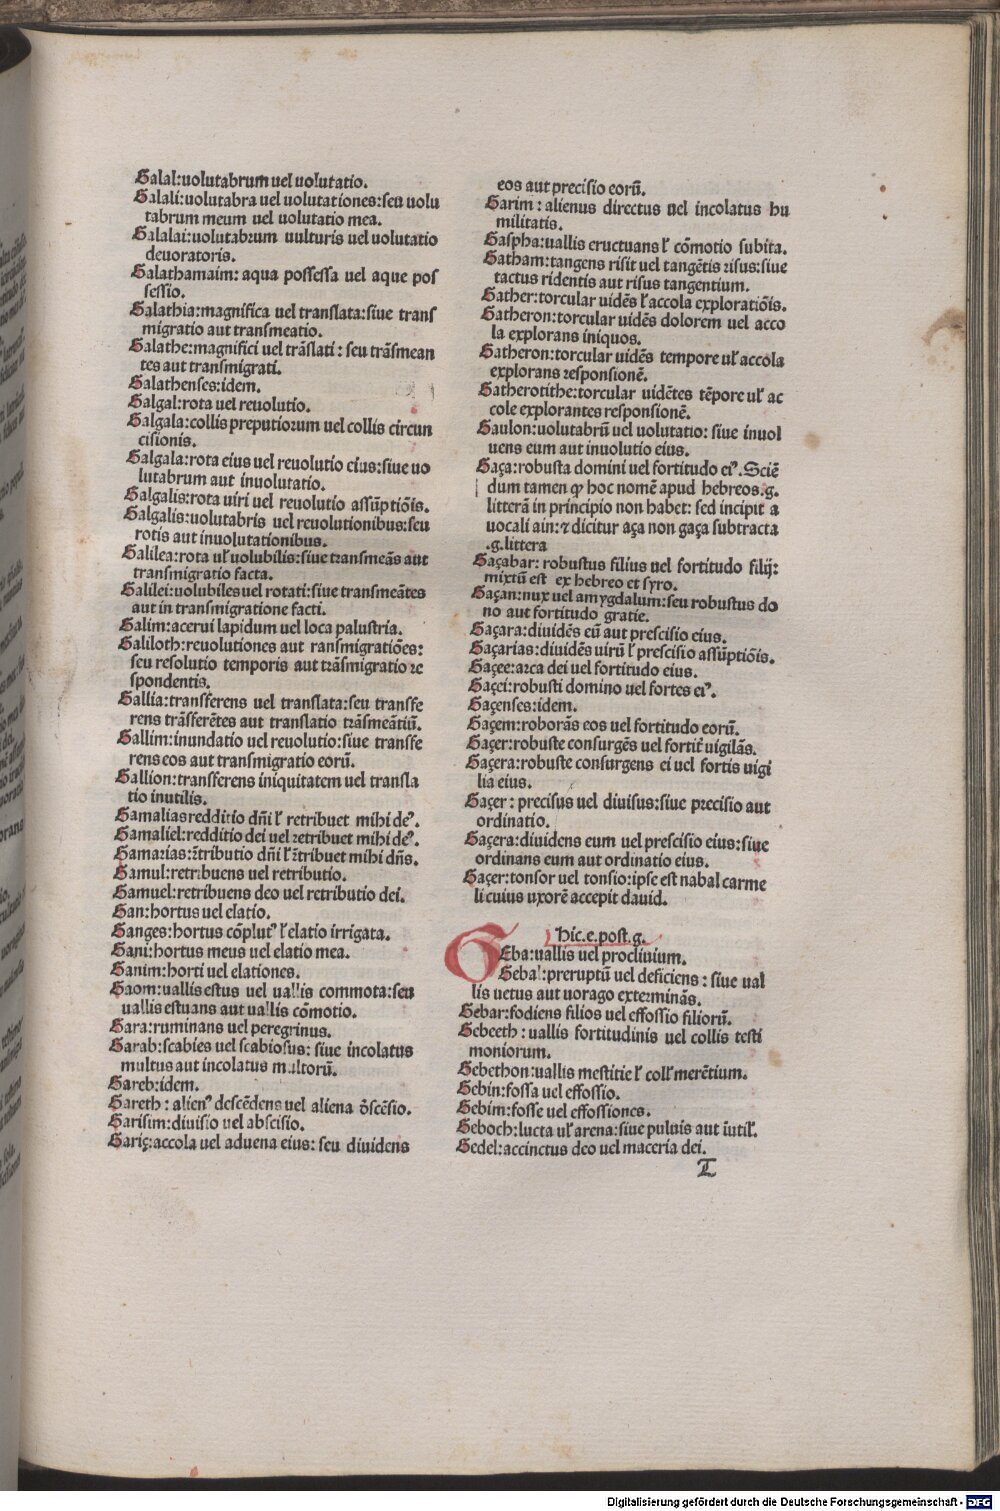 Galal:uolutabrum uel uolutatio.
Galali:uolutabra uel uolutationes:seu uolu
tabrum meum uel uolutatio mea.
Galalai:uolutabrum uulturis uel uolutatio
deuoratoris.
Galathamaim: aqua possessa uel aque pos
sessio.
Galathia:magnifica uel translata:siue trans
migratio aut transmeatio.
Galathe:magnifici uel trãslati : seu trãsmean
tes aut transmigrati.
Galathenses:idem.
Galgal:rota uel reuolutio.
Galgala:collis preputiorum uel collis circun
cisionis.
Galgala:rota eius uel reuolutio eius:siue uo
lutabrum aut inuolutatio.
Galgalis:rota uiri uel reuolutio assũptiõis.
Galgalis:uolutabris uel reuolutionibus:seu
rotis aut inuolutationibus.
Galilea:rota uł uolubilis:siue transmeãs aut
transmigratio facta.
Galilei:uolubiles uel rotati:siue transmeãtes
aut in transmigratione facti.
Galim:acerui lapidum uel loca palustria.
Galiloth:reuolutiones aut ransmigratiões:
seu resolutio temporis aut trãsmigratio re
spondentis.
Gallia:transferens uel translata:seu transfe
rens trãsferẽtes aut translatio trãsmeãtiũ.
Gallim:inundatio uel reuolutio:siue transfe
rens eos aut transmigratio eorũ.
Gallion:transferens iniquitatem uel transla
tio inutilis.
Gamalias redditio dñi ł retribuet mihi deꝰ.
Gamaliel:redditio dei uel retribuet mihi deꝰ.
Gamarias:r̃tributio dñi ł r̃tribuet mihi dñs.
Gamul:retribuens uel retributio.
Gamuel:retribuens deo uel retributio dei.
Gan:hortus uel elatio.
Ganges:hortus cõplutꝰ ł elatio irrigata.
Gani:hortus meus uel elatio mea.
Ganim:horti uel elationes.
Gaom:uallis estus uel uallis commota:seu
uallis estuans aut uallis cõmotio.
Gara:ruminans uel peregrinus.
Garab:scabies uel scabiosus: siue incolatus
multus aut incolatus multorũ.
Gareb:idem.
Gareth: alienꝰ descẽdens uel aliena d̾scẽsio.
Garisim:diuisio uel abscisio.
Gariç:accola uel aduena eius: seu diuidens
eos aut precisio eorũ.
Garim: alienus directus uel incolatus hu
militatis.
Gaspha:uallis eructuans ł cõmotio subita.
Gatham:tangens risit uel tangẽtis risus:siue
tactus ridentis aut risus tangentium.
Gather:torcular uidẽs ł accola exploratiõis.
Gatheron:torcular uidẽs dolorem uel acco
la explorans iniquos.
Gatheron:torcular uidẽs tempore uł accola
explorans responsionẽ.
Gatherotithe:torcular uidẽtes tẽpore uł ac
cole explorantes responsionẽ.
Gaulon:uolutabrũ uel uolutatio: siue inuol
uens eum aut inuolutio eius.
Gaça:robusta domini uel fortitudo eiꝰ.Sciẽ
dum tamen ꝙ hoc nomẽ apud hebreos.g.
litterã in principio non habet: sed incipit a
uocali ain:⁊ dicitur aça non gaça subtracta
.g.littera
Gaçabar: robustus filius uel fortitudo filij:
mixtũ est ex hebreo et syro.
Gaçan:nux uel amygdalum:seu robustus do
no aut fortitudo gratie.
Gaçara:diuidẽs eũ aut prescisio eius.
Gaçarias:diuidẽs uirũ ł prescisio assũptiõis.
Gaçee:arca dei uel fortitudo eius.
Gaçei:robusti domino uel fortes eiꝰ.
Gaçenses:idem.
Gaçem:roborãs eos uel fortitudo eorũ.
Gaçer:robuste consurgẽs uel fortit̾ uigilãs.
Gaçera:robuste consurgens ei uel fortis uigi
lia eius.
Gaçer: precisus uel diuisus:siue precisio aut
ordinatio.
Gaçera:diuidens eum uel prescisio eius:siue
ordinans eum aut ordinatio eius.
Gaçer:tonsor uel tonsio:ipse est nabal carme
li:cuius uxorẽ accepit dauid.
Hic.e.post.g.
GEba:uallis uel procliuium.
Gebal:preruptũ uel deficiens: siue ual
lis uetus aut uorago exterminãs.
Gebar:fodiens filios uel effossio filiorũ.
Gebeeth: uallis fortitudinis uel collis testi
moniorum.
Gebethon:uallis mestitie ł coll̾ merẽtium.
Gebin:fossa uel effossio.
Gebim:fosse uel effossiones.
Geboch:lucta uł arena:siue puluis aut ĩutił.
Gedel:accinctus deo uel maceria dei.
T
Digitalisierung gefördert durch die Deutsche Forschungsgemeinschaft - DFG